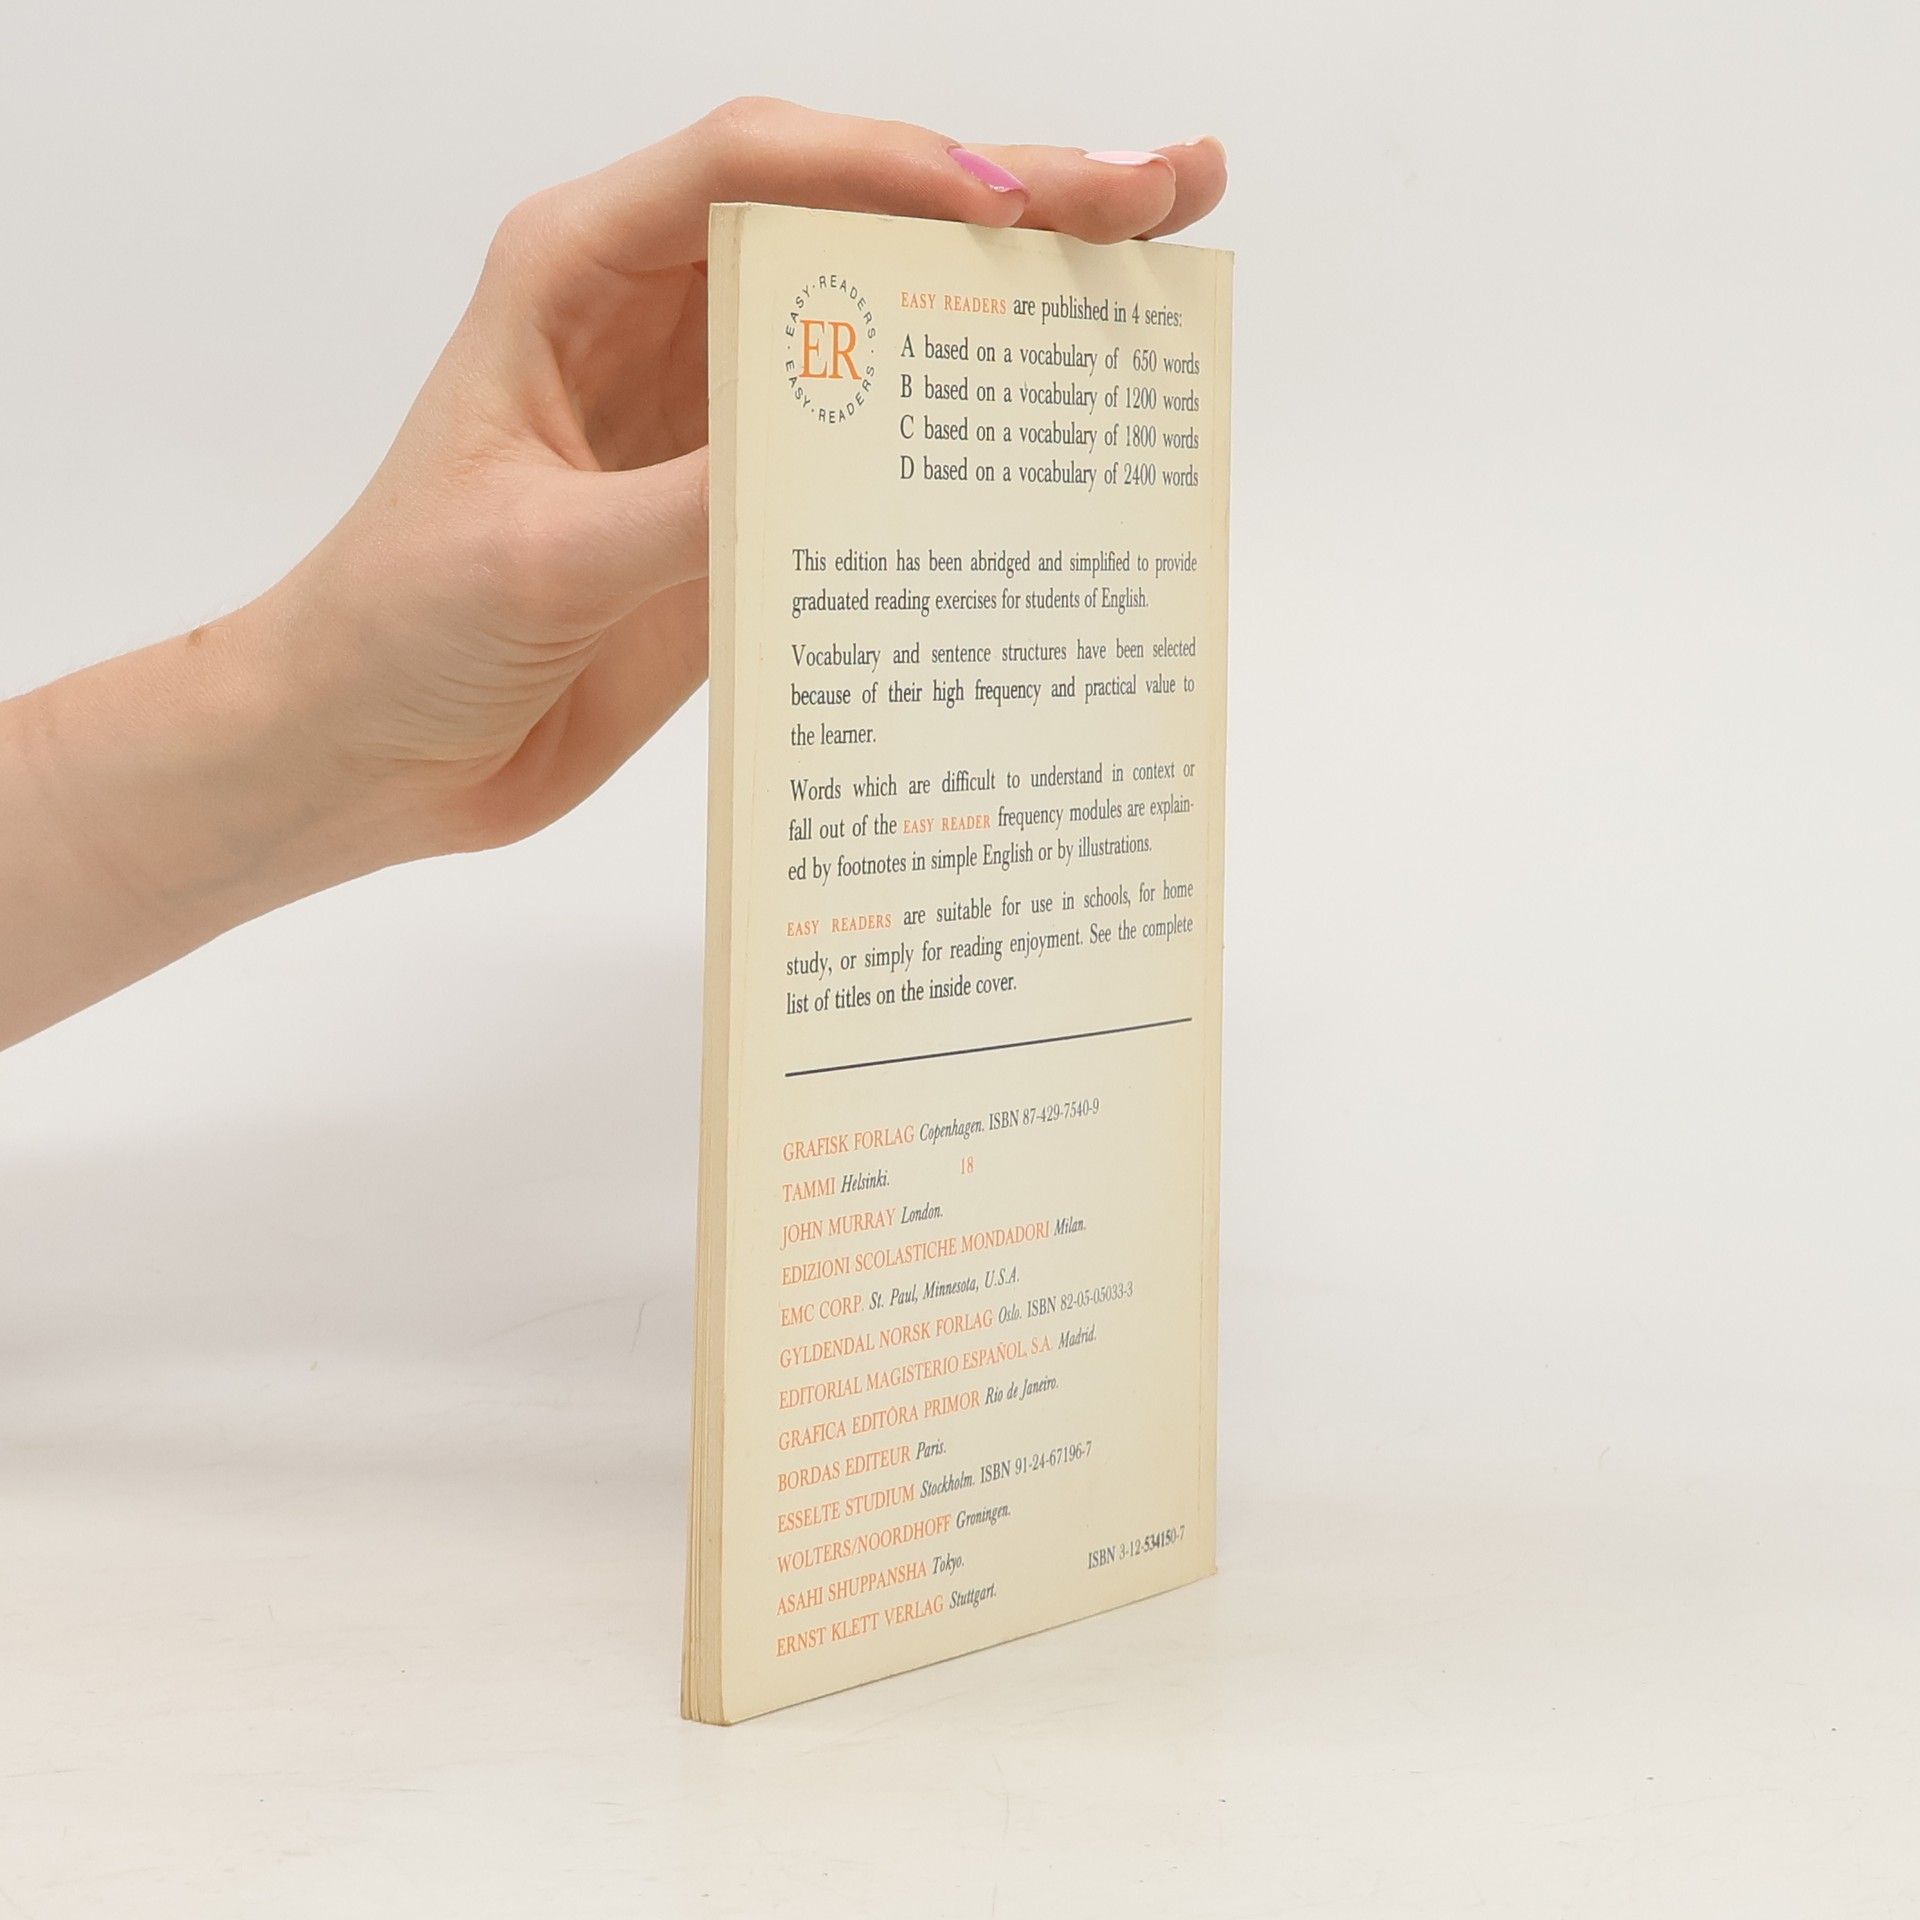 EASY·READERS·EASY·READERS·
ER
EASY READERS are published in 4 series:
A based on a vocabulary of 650 words
B based on a vocabulary of 1200 words
C based on a vocabulary of 1800 words
D based on a vocabulary of 2400 words
This edition has been abridged and simplified to provide
graduated reading exercises for students of English.
Vocabulary and sentence structures have been selected
because of their high frequency and practical value to
the learner.
Words which are difficult to understand in context or
fall out of the EASY READER frequency modules are explain-
ed by footnotes in simple English or by illustrations.
EASY READERS are suitable for use in schools, for home
study, or simply for reading enjoyment. See the complete
list of titles on the inside cover.
GRAFISK FORLAG Copenhagen. ISBN 87-429-7540-9
TAMMI Helsinki. 18
JOHN MURRAY London.
EDIZIONI SCOLASTICHE MONDADORI Milan.
EMC CORP. St. Paul, Minnesota, U.S.A.
GYLDENDAL NORSK FORLAG Oslo. ISBN 82-05-05033-3
EDITORIAL MAGISTERIO ESPAÑOL, S.A. Madrid.
GRAFICA EDITÔRA PRIMOR Rio de Janeiro.
BORDAS EDITEUR Paris.
ESSELTE STUDIUM Stockholm. ISBN 91-24-67196-7
WOLTERS/NOORDHOFF Groningen.
ASAHI SHUPPANSHA Tokyo.
ERNST KLETT VERLAG Stuttgart.
ISBN 3-12-534150-7